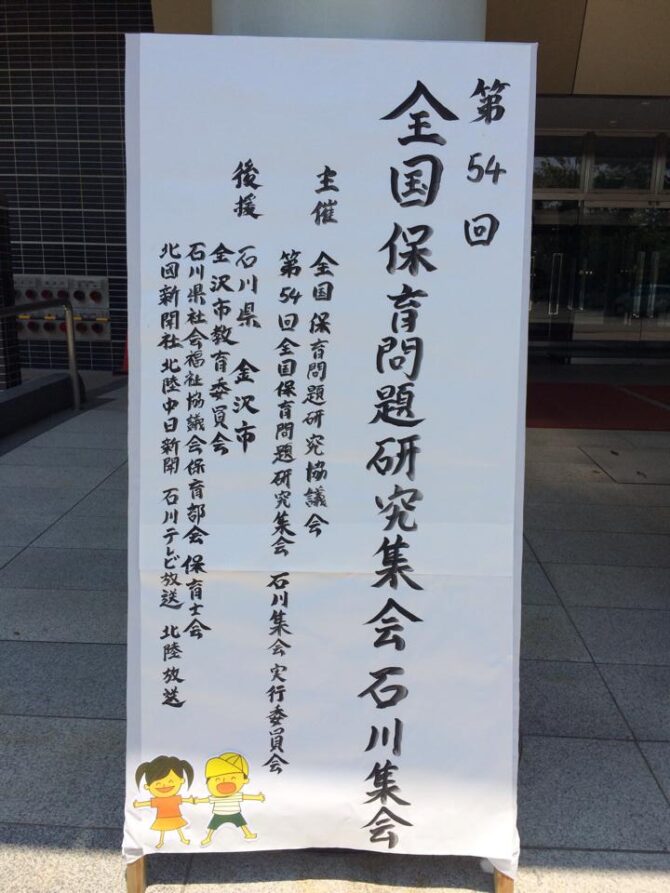 第54回
全国保育問題研究集会 石川集会
主催 全国保育問題研究協議会
第54回全国保育問題研究集会 石川集会 実行委員会
後援 石川県 金沢市
金沢市教育委員会
石川県社会福祉協議会保育部会 保育士会
北国新聞社 北陸中日新聞 石川テレビ放送 北陸放送